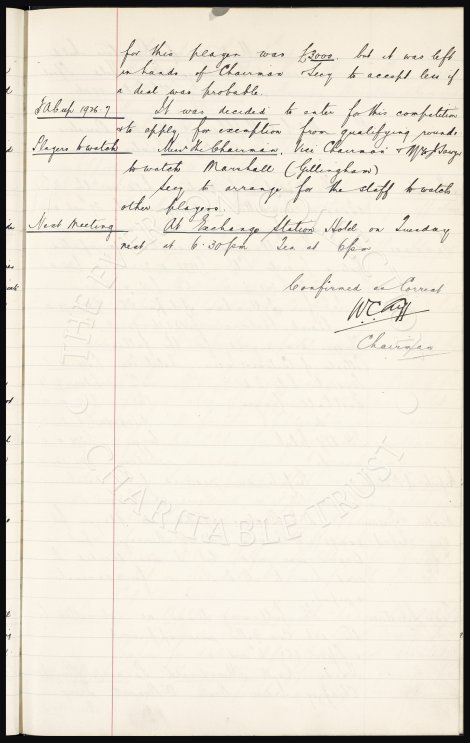 for this player was £3000. but it was left
in hands of Chairman & Secy to accept less if
a deal was probable.
FA Cup 1926.7 It was decided to enter for this competition
& to apply for exemption from qualifying rounds
Players to watch Mess The Chairman, Vice Chairman &
to watch Marshall (Gillingham)
Secy to arrange for the staff to watch
other players.
Next Meeting At Exchange Station Hotel on Tuesday
next at 6.30pm Tea at 6pm
Confirmed as Correct
W.C. Cuff
Chairman
THE
CHARITABLE TRUST